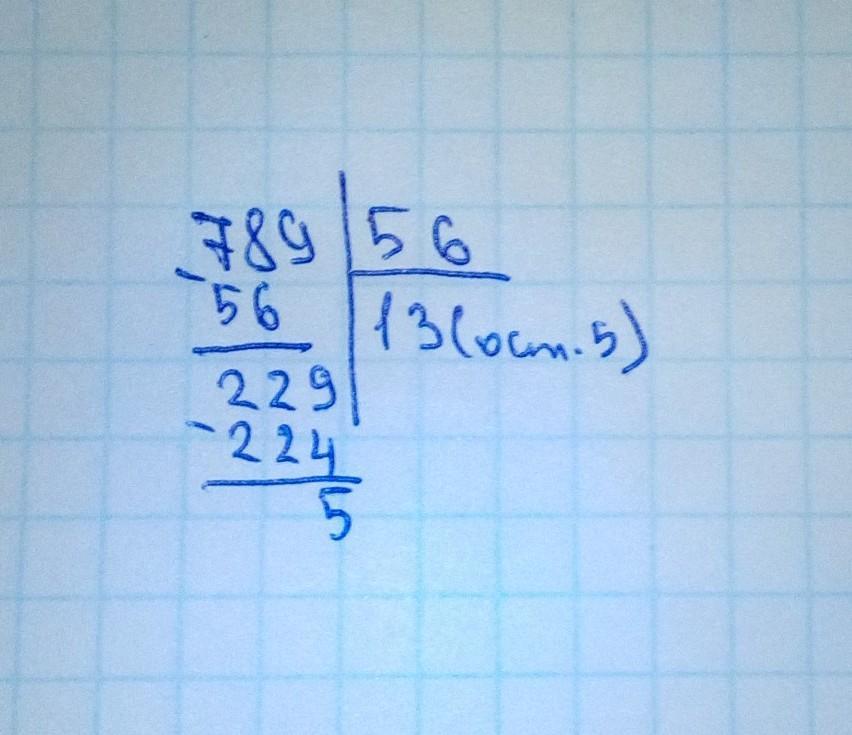 789 | 56
- 56 | 13 (ост. 5)
229
- 224
5